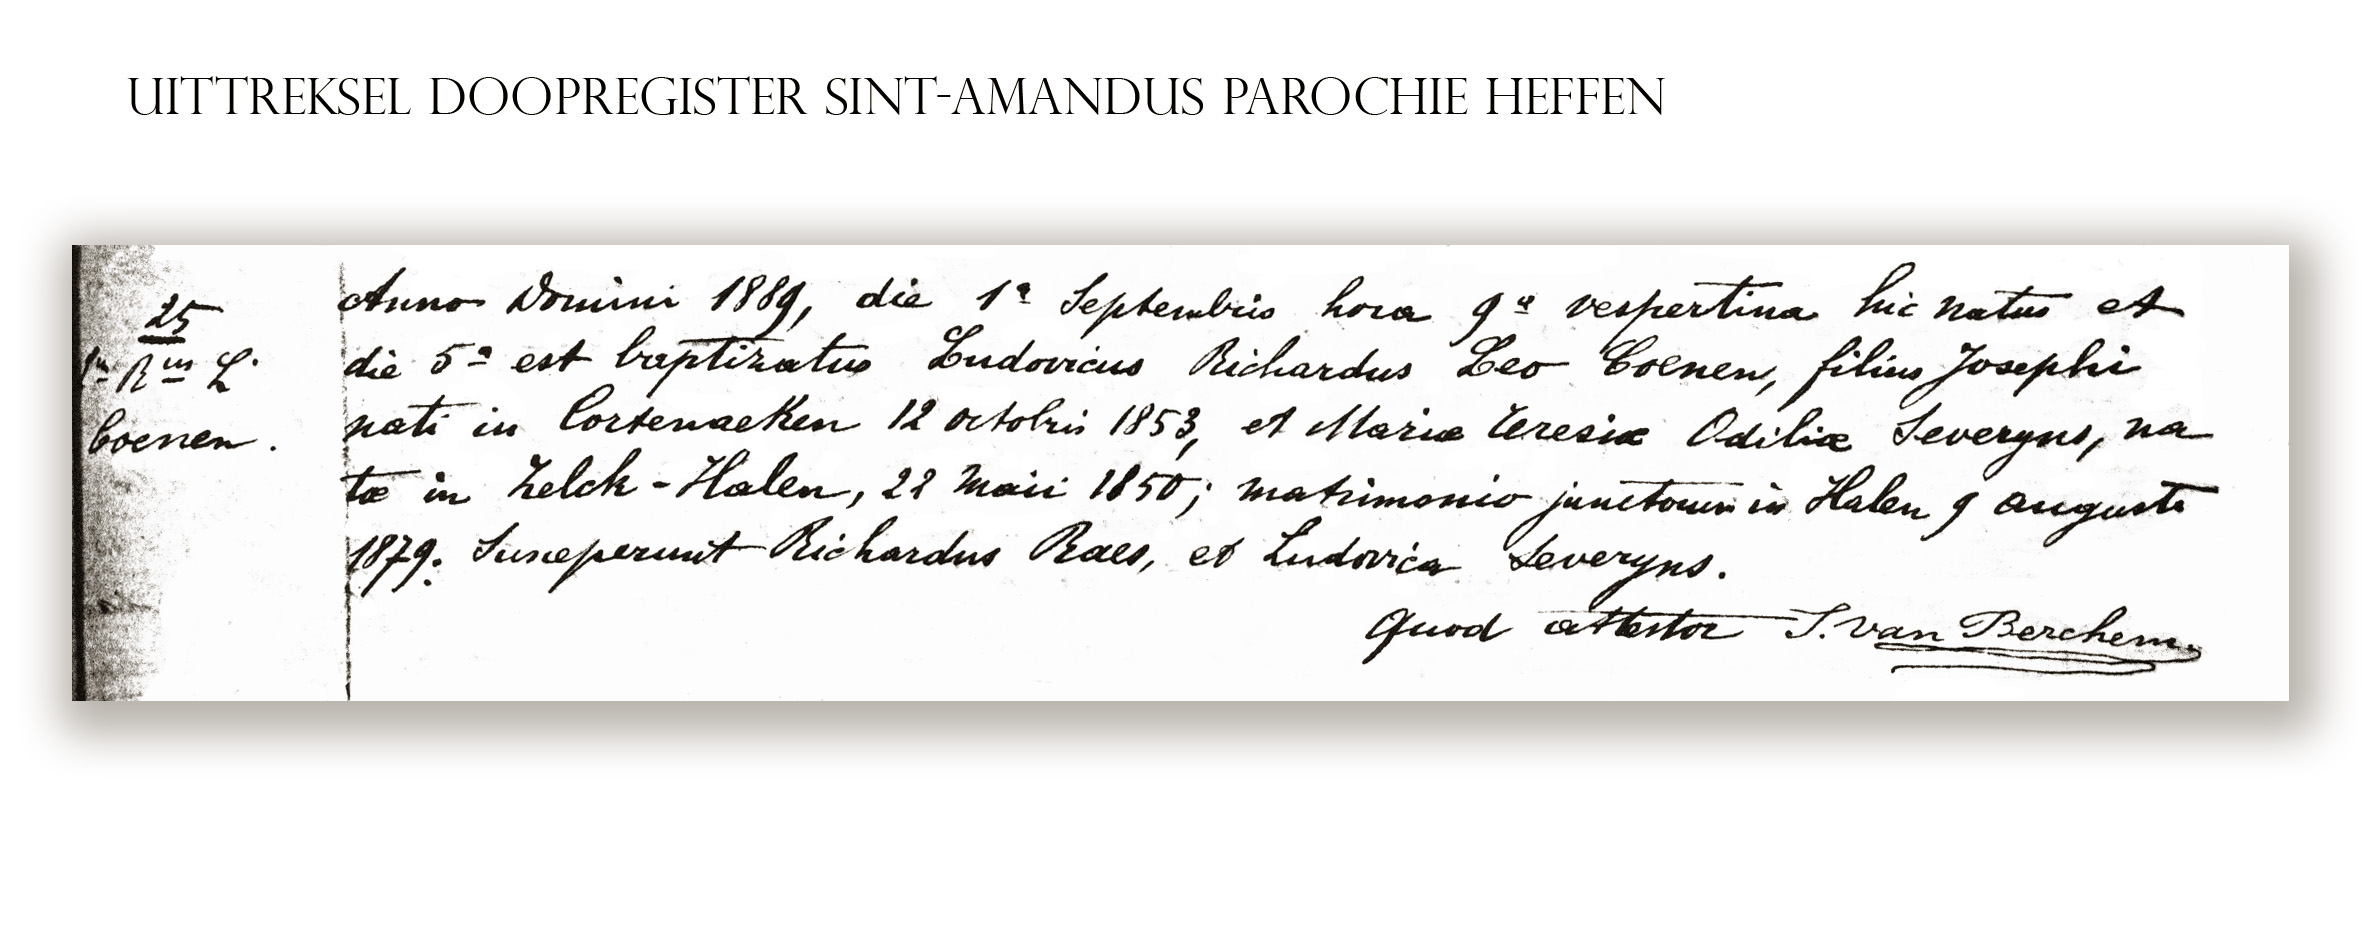 UITTREKSEL DOOPREGISTER SINT-AMANDUS PAROCHIE HEFFEN
25
Rus L.
Coenen.
Anno Domini 1889, die 1a Septembris hora 9a vespertina hic natus et
die 5a est baptizatus Ludovicus Richardus Leo Coenen, filius Josephi
nati in Cortenaeken 12 octobris 1853, et Mariæ Teresiæ Odiliæ Severyns, na
tæ in Zelck-Halen, 22 Maii 1850; matrimonio junctorum in Halen 9 augusti
1879. Susceperunt Richardus Raes, et Ludovica Severyns.
Quod attestor J. van Berchem.